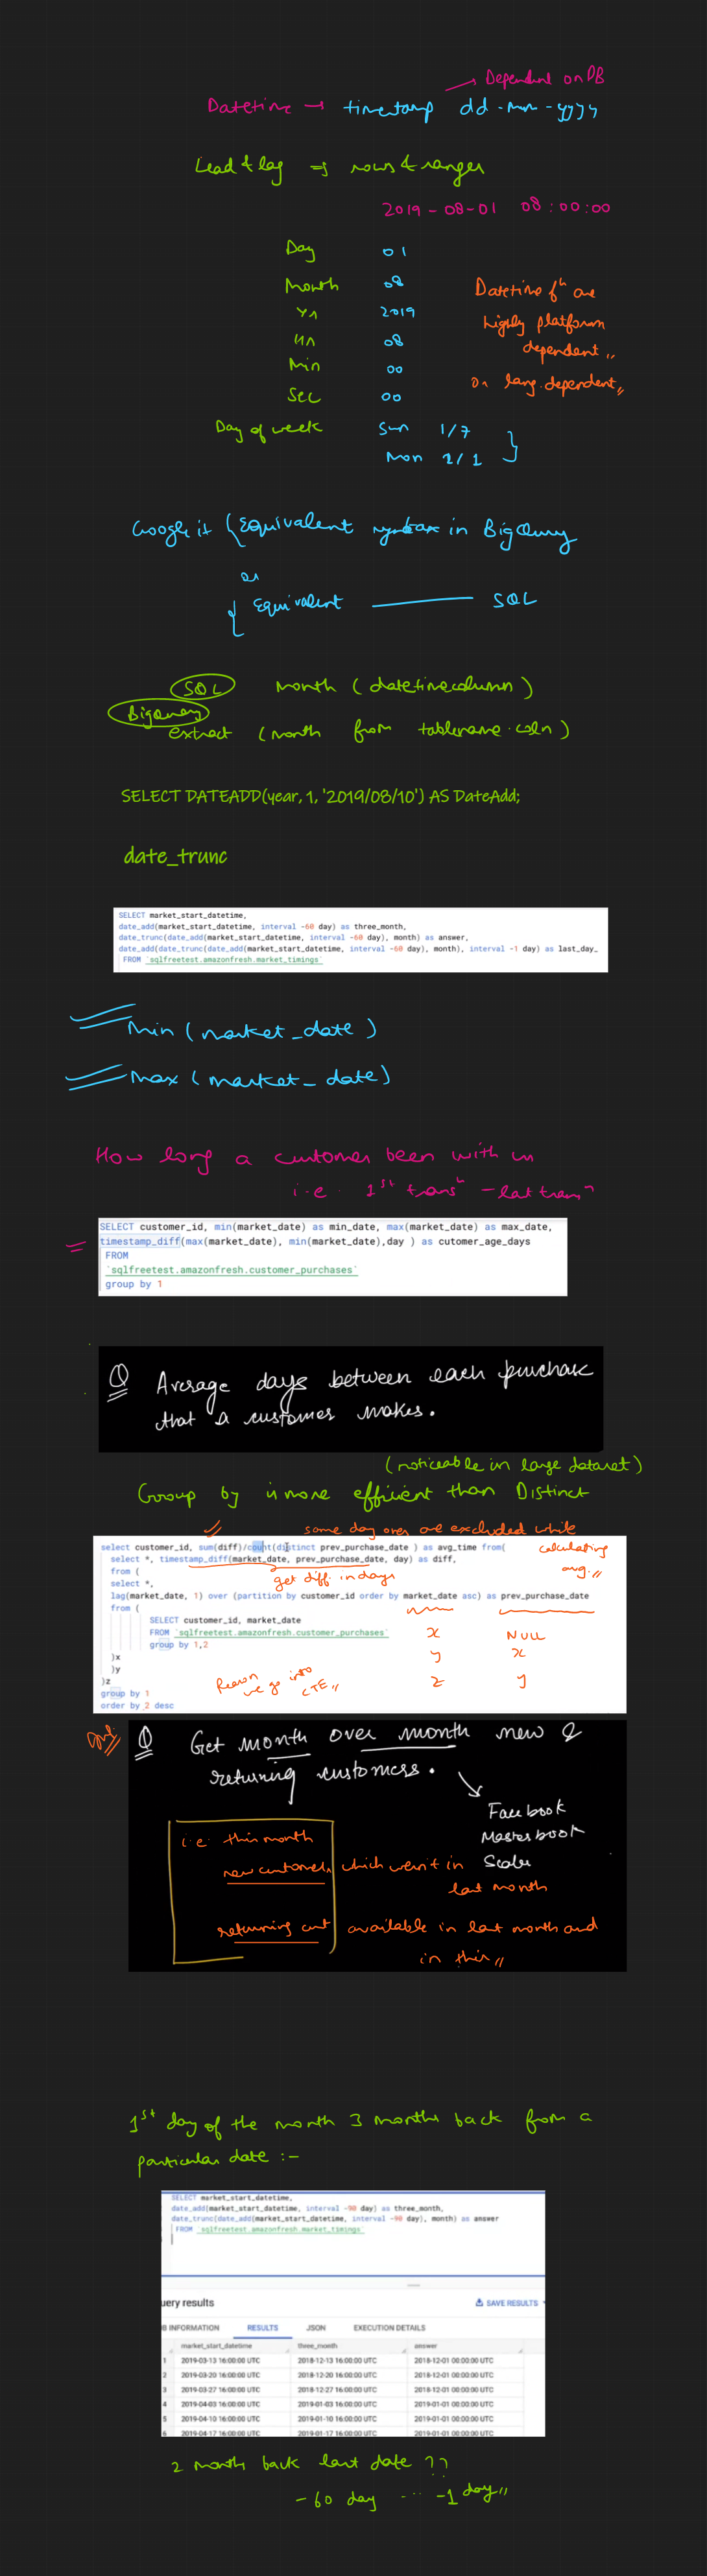 Dependent on DB
Datetime → timestamp dd-mm-yyyy
Lead & lag → rows & ranges
2019-08-01 08:00:00
Day 01
Month 08
Yr 2019
Hr 08
Min 00
Sec 00
Datetime fn are
highly platform
dependent
or lang. dependent
Day of week Sun 1/7
Mon 2/1
Google it { Equivalent syntax in BigQuery
or
{ Equivalent ——— SQL
SQL month (datetimecolumn)
BigQuery
extract (month from tablename.coln)
SELECT DATEADD(year, 1, '2019/08/10') AS DateAdd;
date_trunc
SELECT market_start_datetime,
date_add(market_start_datetime, interval -60 day) as three_month,
date_trunc(date_add(market_start_datetime, interval -60 day), month) as answer,
date_add(date_trunc(date_add(market_start_datetime, interval -60 day), month), interval -1 day) as last_day_
FROM `sqlfreetest.amazonfresh.market_timings`
Min (market_date)
max (market_date)
How long a customer been with us
i.e. 1st transn - last transn
SELECT customer_id, min(market_date) as min_date, max(market_date) as max_date,
timestamp_diff(max(market_date), min(market_date),day ) as cutomer_age_days
FROM
`sqlfreetest.amazonfresh.customer_purchases`
group by 1
Q Average days between each purchase
that a customer makes.
(noticeable in large dataset)
Group by is more efficient than Distinct
same day over are excluded while
calculating
avg.
select customer_id, sum(diff)/count(distinct prev_purchase_date ) as avg_time from(
select *, timestamp_diff(market_date, prev_purchase_date, day) as diff,
get diff in days
from (
select *,
lag(market_date, 1) over (partition by customer_id order by market_date asc) as prev_purchase_date
from (
SELECT customer_id, market_date
FROM `sqlfreetest.amazonfresh.customer_purchases`
group by 1,2
)x
)y
)z
x NULL
y x
z y
Reason
we go into
CTE
group by 1
order by 2 desc
Q Get month over month new &
returning customers.
Facebook
Masterbook
Scaler
i.e. this month
new customers, which weren't in
last month
returning cust available in last month and
in this
1st day of the month 3 months back from a
particular date :-
SELECT market_start_datetime,
date_add(market_start_datetime, interval -90 day) as three_month,
date_trunc(date_add(market_start_datetime, interval -90 day), month) as answer
FROM `sqlfreetest.amazonfresh.market_timings`
uery results
SAVE RESULTS
B INFORMATION RESULTS JSON EXECUTION DETAILS
market_start_datetime three_month answer
1 2019-03-13 16:00:00 UTC 2018-12-13 16:00:00 UTC 2018-12-01 00:00:00 UTC
2 2019-03-20 16:00:00 UTC 2018-12-20 16:00:00 UTC 2018-12-01 00:00:00 UTC
3 2019-03-27 16:00:00 UTC 2018-12-27 16:00:00 UTC 2018-12-01 00:00:00 UTC
4 2019-04-03 16:00:00 UTC 2019-01-03 16:00:00 UTC 2019-01-01 00:00:00 UTC
5 2019-04-10 16:00:00 UTC 2019-01-10 16:00:00 UTC 2019-01-01 00:00:00 UTC
6 2019-04-17 16:00:00 UTC 2019-01-17 16:00:00 UTC 2019-01-01 00:00:00 UTC
2 month back last date ??
-60 day ... -1 day